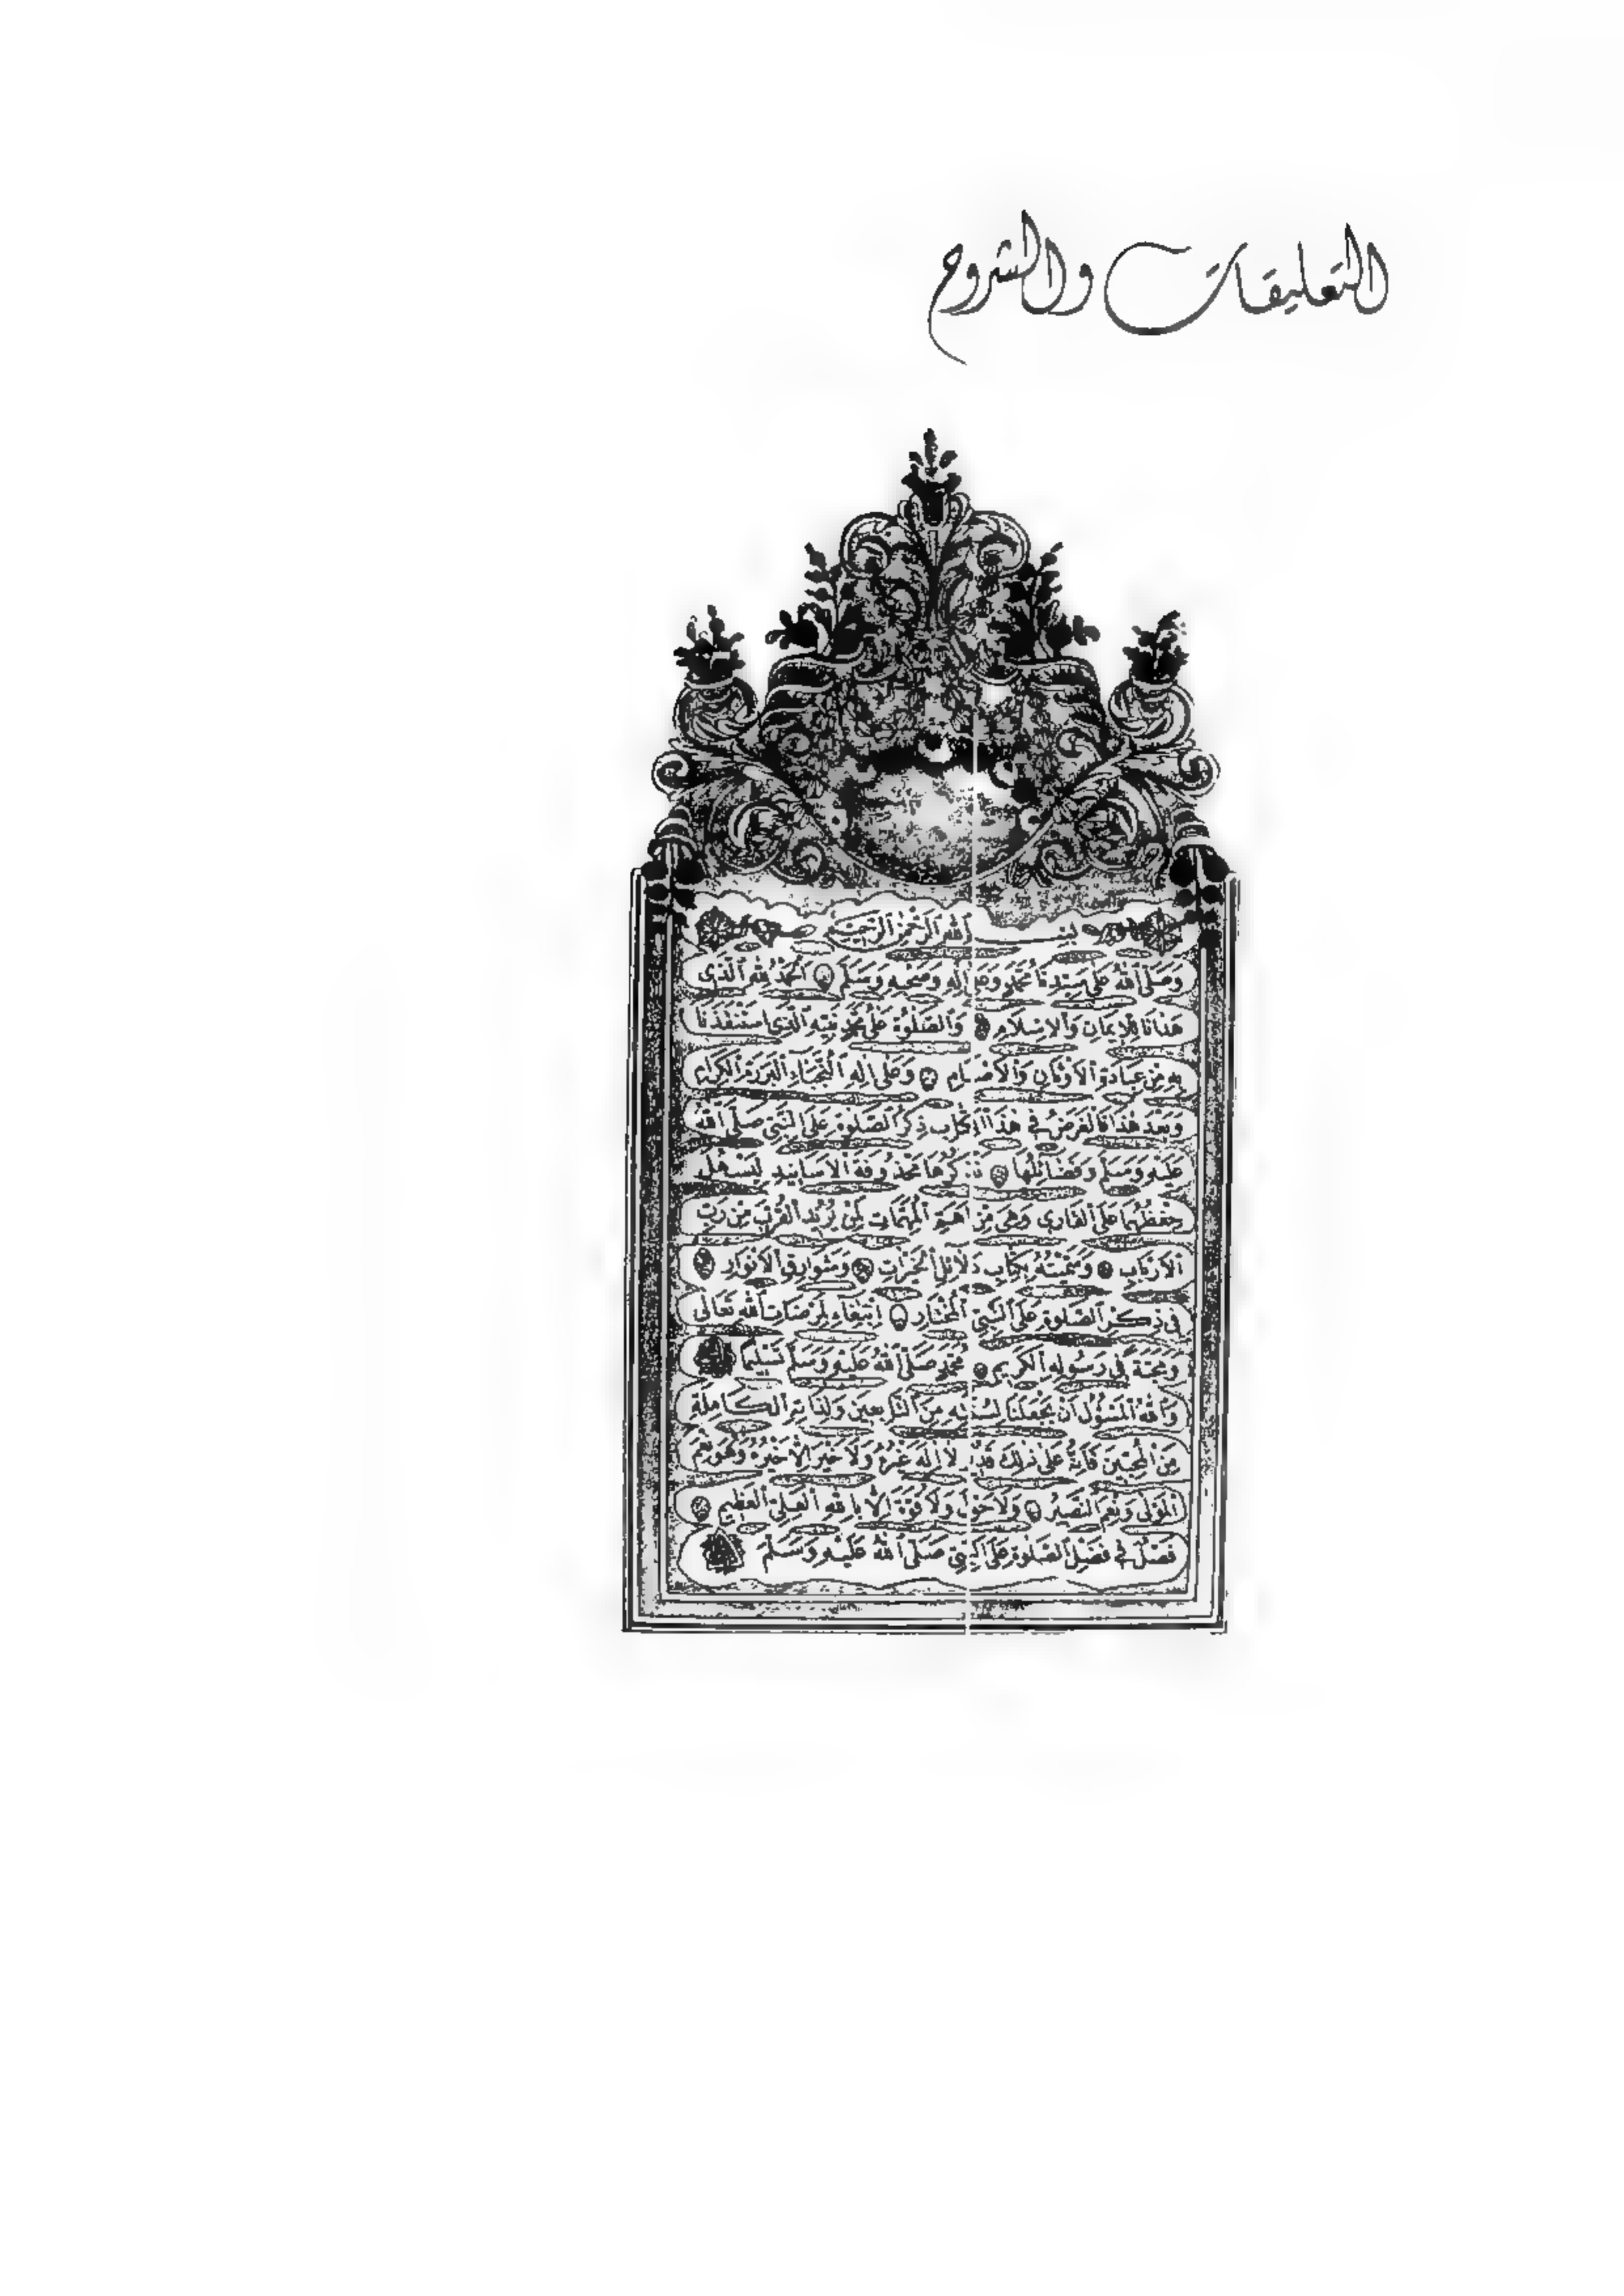 التعليقات والشروح
بسم الله الرحمن الرحيم
وَصَلَّى اللهُ عَلَى سَيِّدِنَا مُحَمَّدٍ وَعَلَى اٰلِهِ وَصَحْبِهِ وَسَلَّمَ اَلْحَمْدُ لِلّٰهِ الَّذِى
هَدَانَا لِلْاِيمَانِ وَالْاِسْلَامِ وَالصَّلٰوةُ عَلٰى مُحَمَّدٍ نَبِيِّهِ الَّذِى اسْتَنْقَذَنَا
بِهِ مِنْ عِبَادَةِ الْاَوْثَانِ وَالْاَصْنَامِ وَعَلٰى اٰلِهِ النُّجَبَاءِ الْبَرَرَةِ الْكِرَامِ
وَبَعْدَ هٰذَا فَالْغَرَضُ فِى هٰذَا الْكِتَابِ ذِكْرُ الصَّلٰوةِ عَلَى النَّبِىِّ صَلَّى اللهُ
عَلَيْهِ وَسَلَّمَ وَفَضَائِلُهَا نَذْكُرُهَا مَحْذُوفَةَ الْاَسَانِيدِ لِيَسْهُلَ
حِفْظُهَا عَلَى الْقَارِى وَهِىَ مِنْ اَهَمِّ الْمُهِمَّاتِ لِمَنْ يُرِيدُ الْقُرْبَ مِنْ رَبِّ
الْاَرْبَابِ وَسَمَّيْتُهُ بِكِتَابِ دَلَائِلِ الْخَيْرَاتِ وَشَوَارِقِ الْاَنْوَارِ
فِى ذِكْرِ الصَّلٰوةِ عَلَى النَّبِىِّ الْمُخْتَارِ اِبْتِغَاءً لِمَرْضَاتِ اللهِ تَعَالٰى
وَمَحَبَّةً فِى رَسُولِهِ الْكَرِيمِ مُحَمَّدٍ صَلَّى اللهُ عَلَيْهِ وَسَلَّمَ تَسْلِيمًا
وَاللهُ الْمَسْؤُلُ اَنْ يَجْعَلَنَا لِسُنَّتِهِ مِنَ التَّابِعِينَ وَلِذَاتِهِ الْكَامِلَةِ
مِنَ الْمُحِبِّينَ فَاِنَّهُ عَلٰى ذٰلِكَ قَدِيرٌ لَا اِلٰهَ غَيْرُهُ وَلَا خَيْرَ اِلَّا خَيْرُهُ وَهُوَ نِعْمَ
الْمَوْلٰى وَنِعْمَ النَّصِيرُ وَلَا حَوْلَ وَلَا قُوَّةَ اِلَّا بِاللهِ الْعَلِىِّ الْعَظِيمِ
فَصْلٌ فِى فَضْلِ الصَّلٰوةِ عَلَى النَّبِىِّ صَلَّى اللهُ عَلَيْهِ وَسَلَّمَ